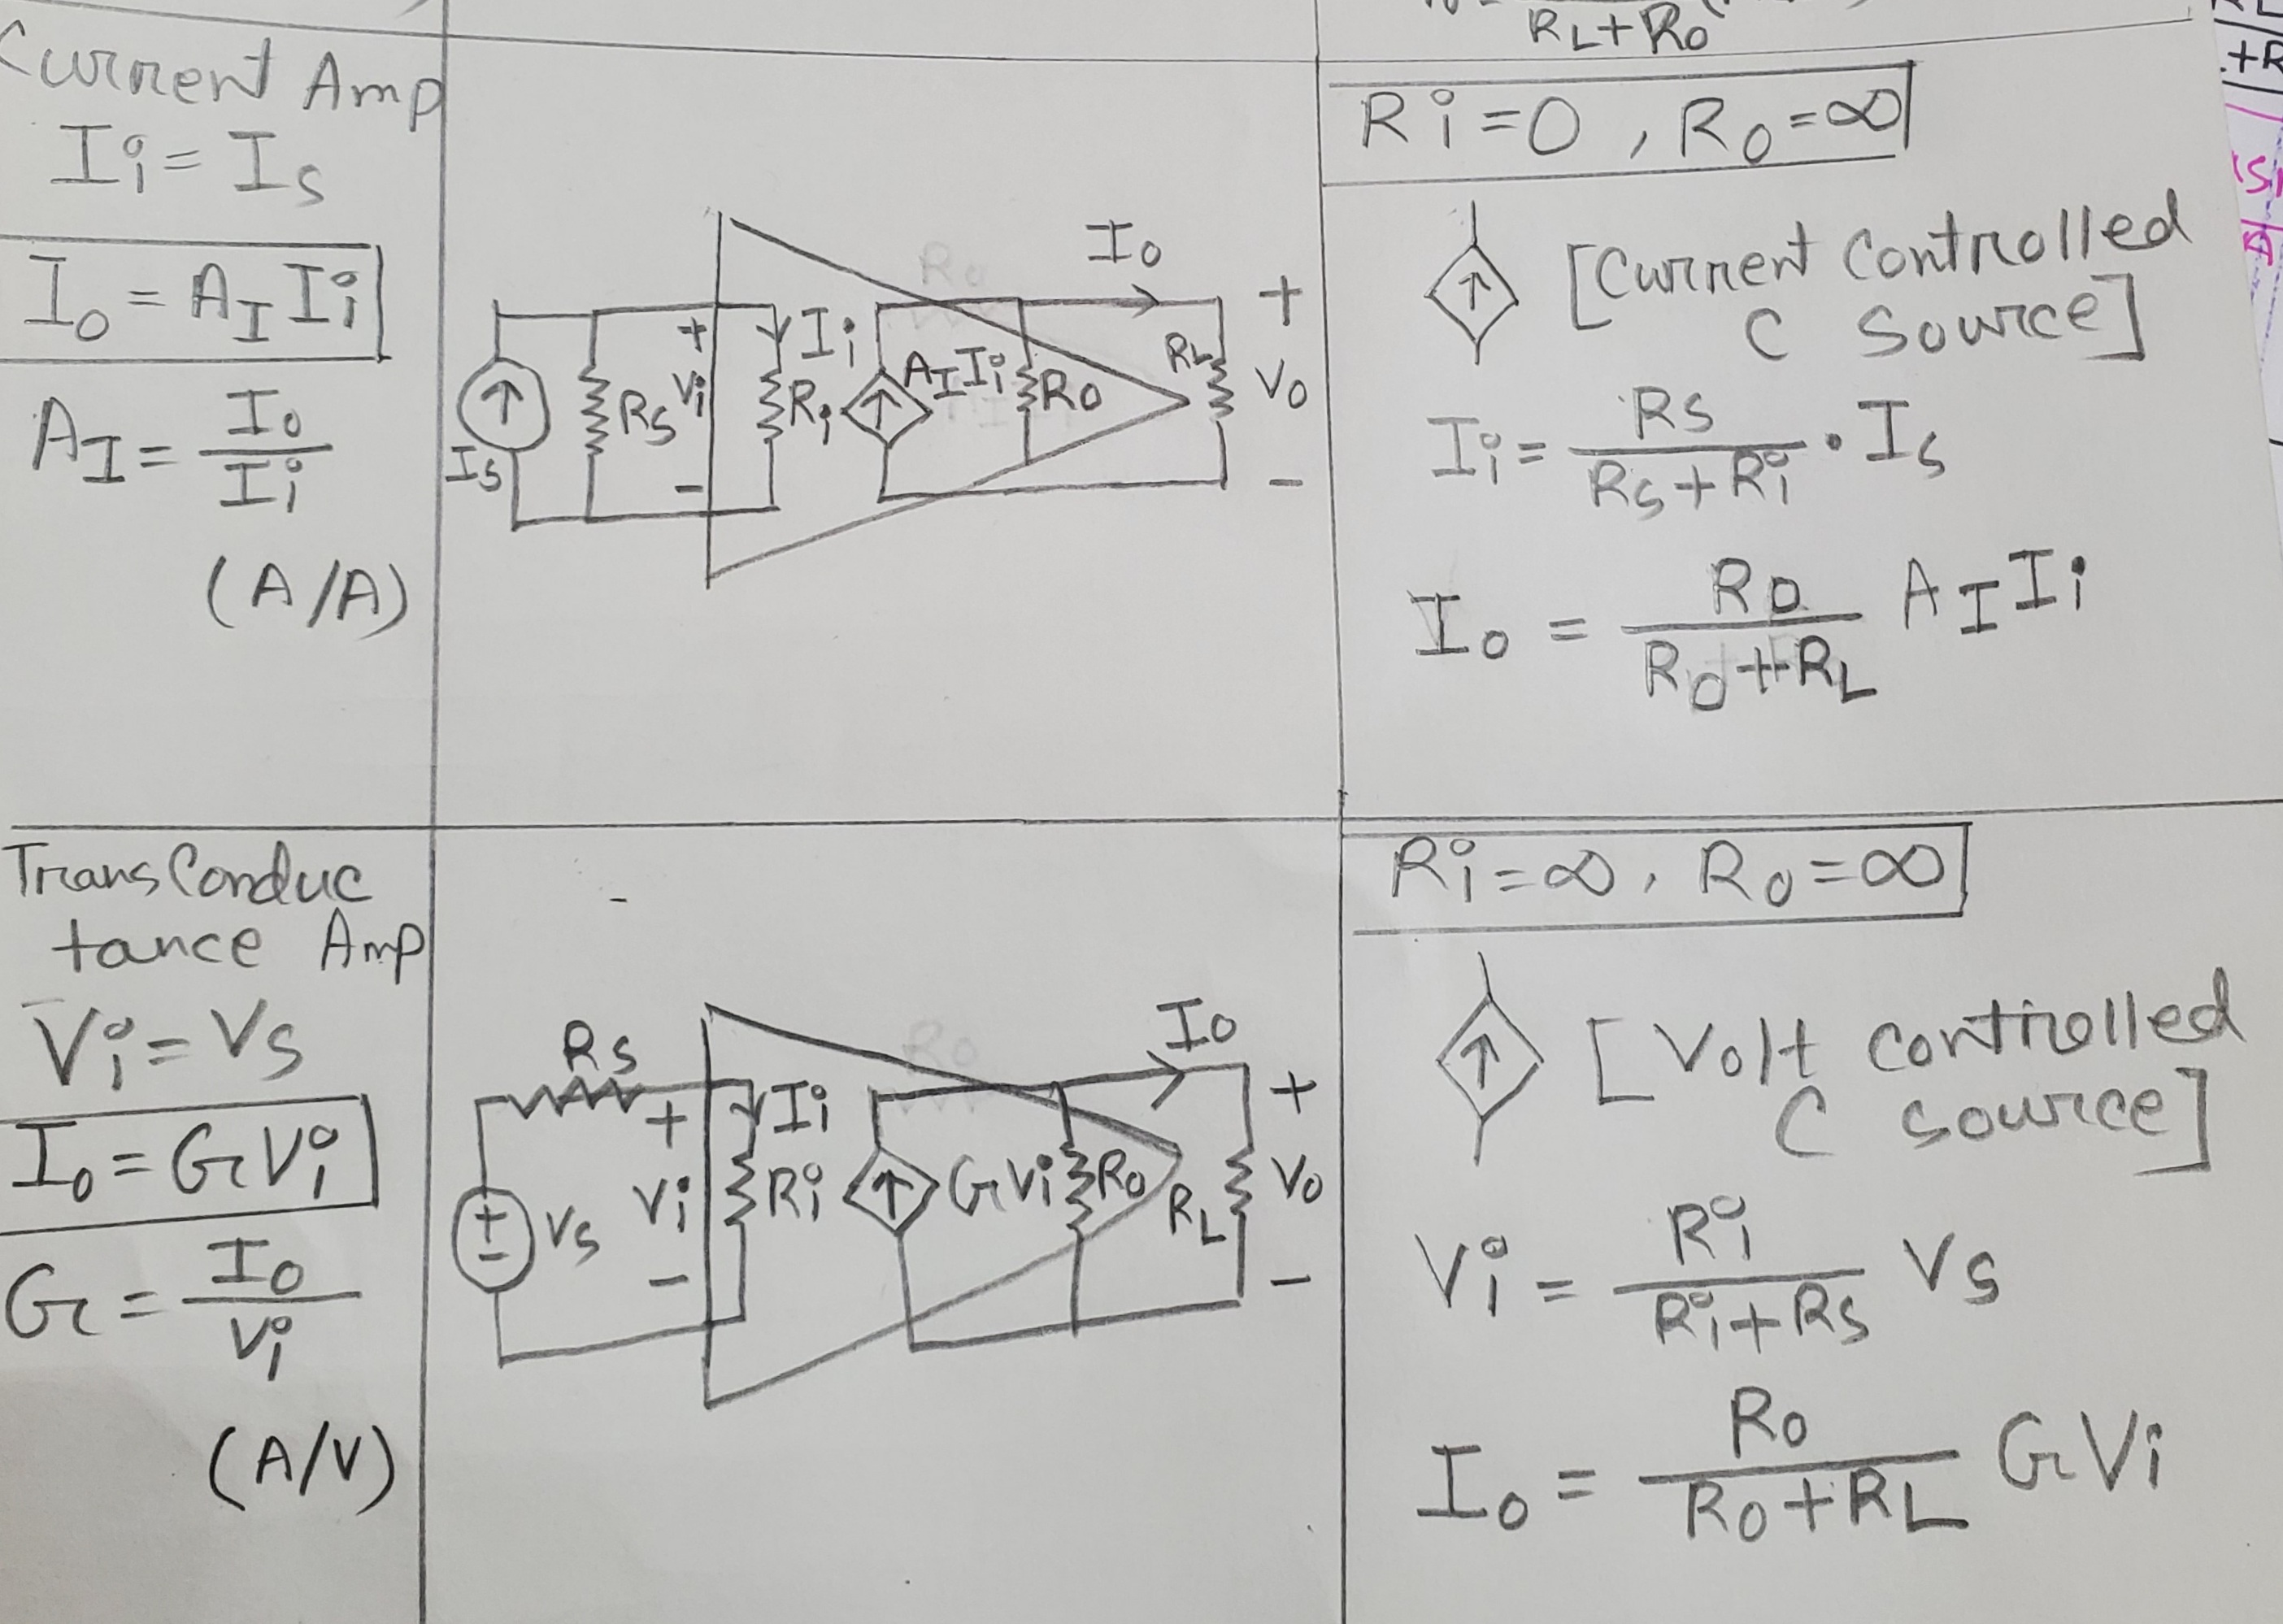 RL+Ro
+R
Current Amp
Ii = Is
Io = AI Ii
AI = Io / Ii
(A/A)
Io
Ro
+
Ii
+
Vi
AI Ii
RL
Vo
Rs
Ri
Ro
Is
-
-
Ri = 0 , Ro = ∞
[Current Controlled
C Source]
Ii = Rs / Rs + Ri . Is
Io = Ro / Ro + RL AI Ii
TransConduc
tance Amp
Vi = Vs
Io = G Vi
G = Io / Vi
(A/V)
Io
Ro
Rs
+
Ii
+
Vi
Ri
G Vi
Ro
RL
Vo
+
-
Vs
-
-
Ri = ∞ , Ro = ∞
[Volt controlled
C source]
Vi = Ri / Ri + Rs Vs
Io = Ro / Ro + RL G Vi